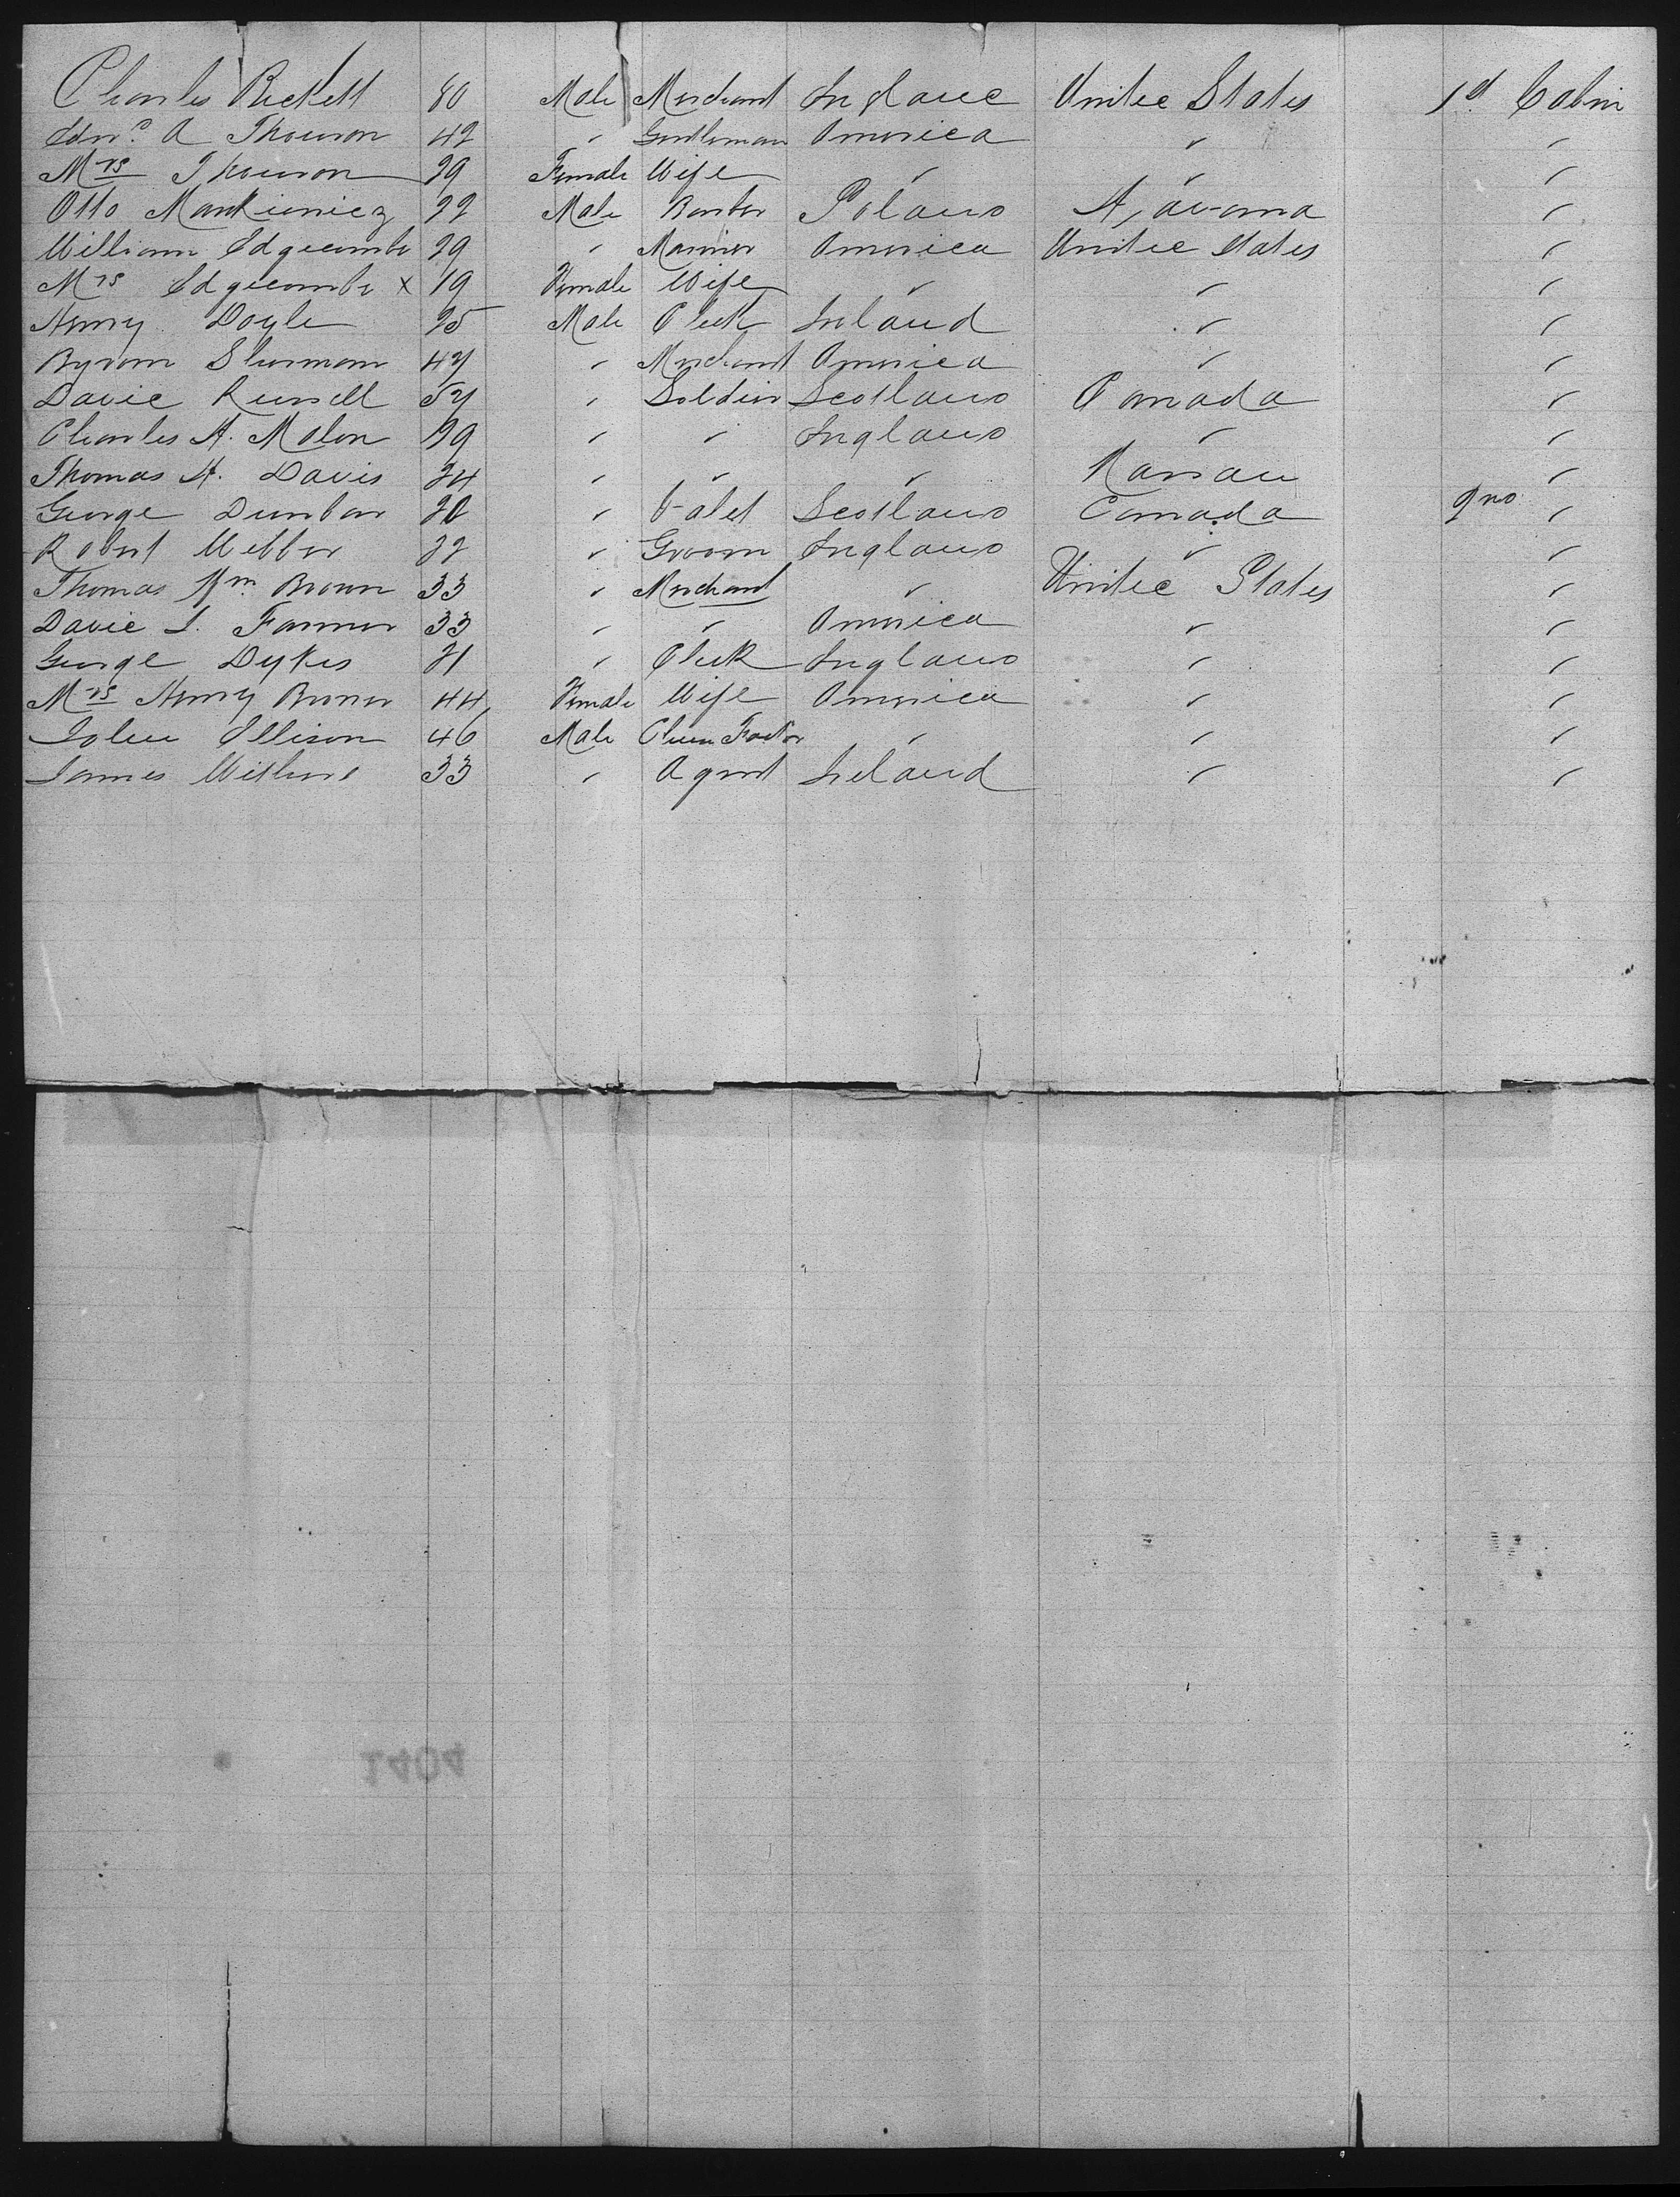 Charles Rickett 80 Male Merchant England United States 1st Cabin
Edwd A Thouron 42 " Gentleman America " "
Mrs Thouron 29 Female Wife " " "
Otto Mankiewicz 22 Male Banker Poland Havana "
William Edgecombe 29 " Mariner America United States "
Mrs Edgecombe x 19 Female Wife " " "
Henry Doyle 25 Male Clerk Ireland " "
Byron Sherman 42 " Merchant America " "
David Russell 52 " Soldier Scotland Canada "
Charles A. Malon 29 " " England " "
Thomas H. Davis 24 " " " Nassau "
George Dunbar 20 " Valet Scotland Canada 2nd "
Robert Webber 22 " Groom England " "
Thomas Wm Brown 33 " Merchant " United States "
David J. Farmer 33 " " America " "
George Dykes 21 " Clerk England " "
Mrs Henry Brown 44 Female Wife America " "
John Ellison 46 Male " " "
James 33 " Agent Ireland " "
1404